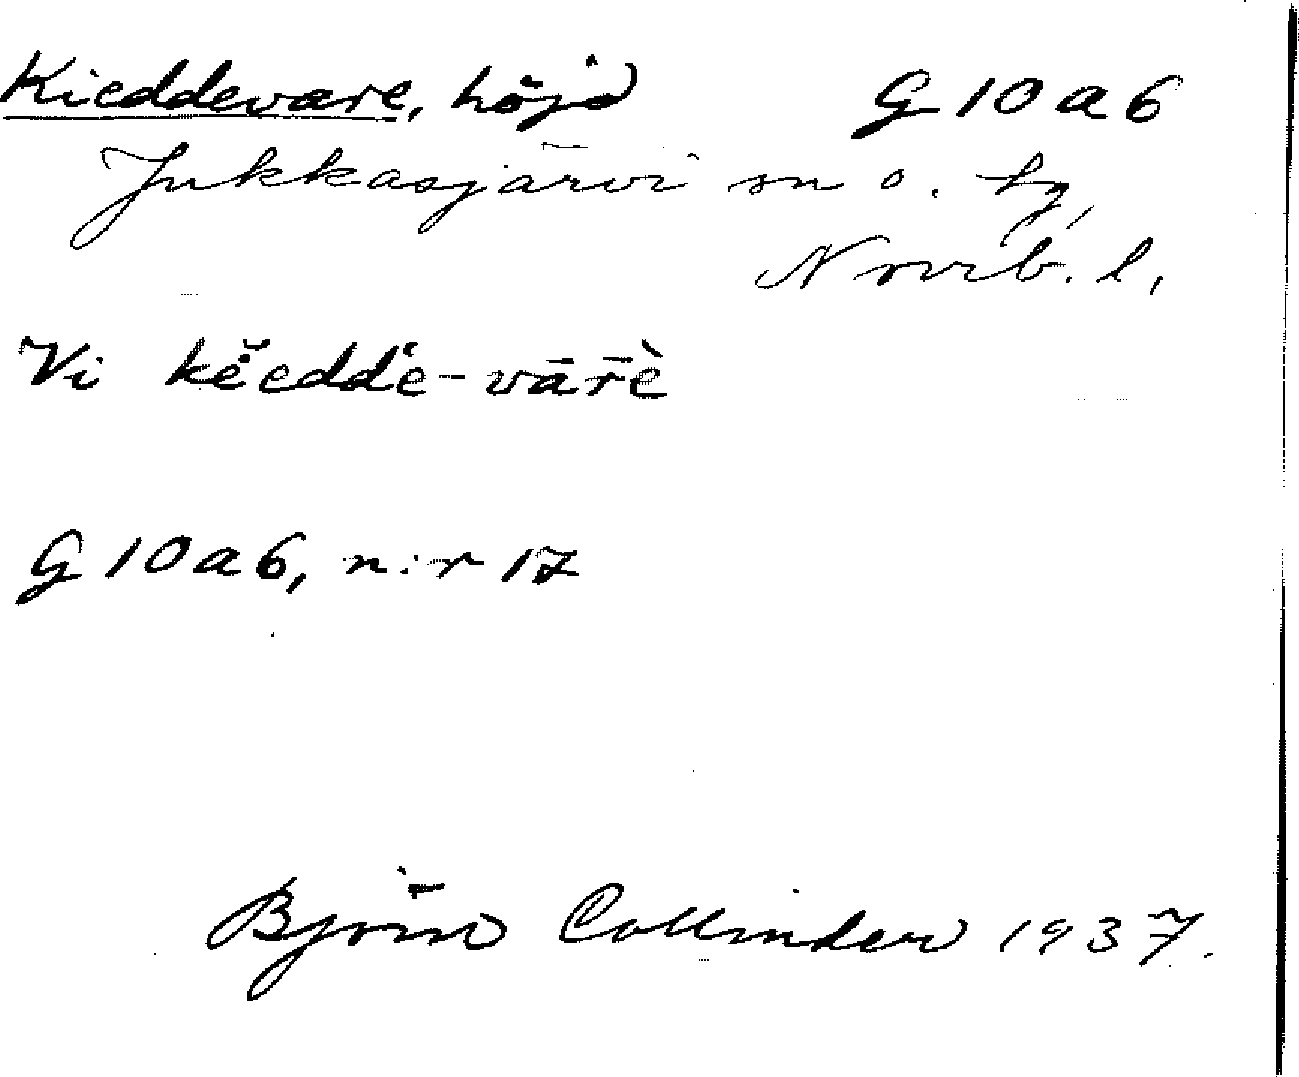 Kieddevare, höjd G 10 a 6
Jukkasjärvi sn o. tg,
Norrb. l.
Vi kĕ̤eddˈe-vār̄è
G 10 a 6, n:r 17
Björn Collinder 1937.